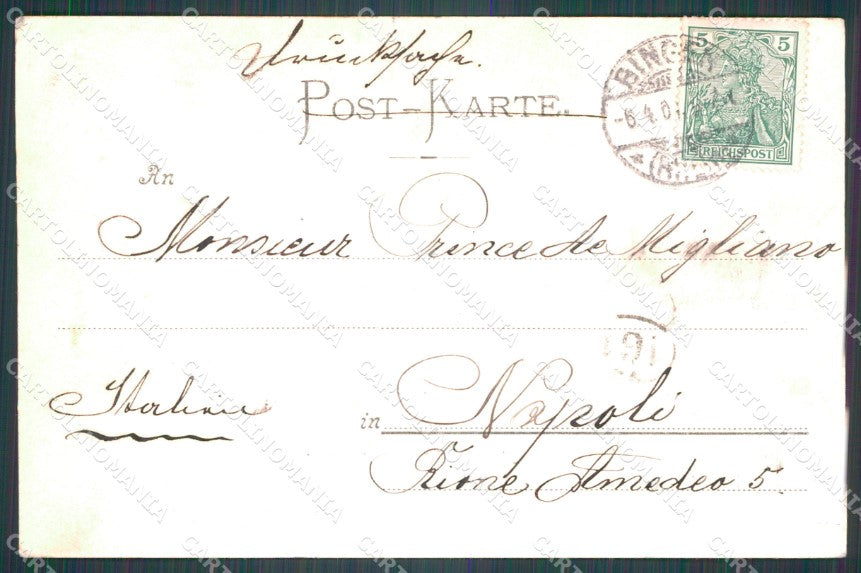 Drucksache.
POST-KARTE.
5 5
REICHSPOST
BINGE
An
Monsieur Prince de Migliano
Italien
in Napoli
Rione Amedeo 5.
CARTOLINOMANIA